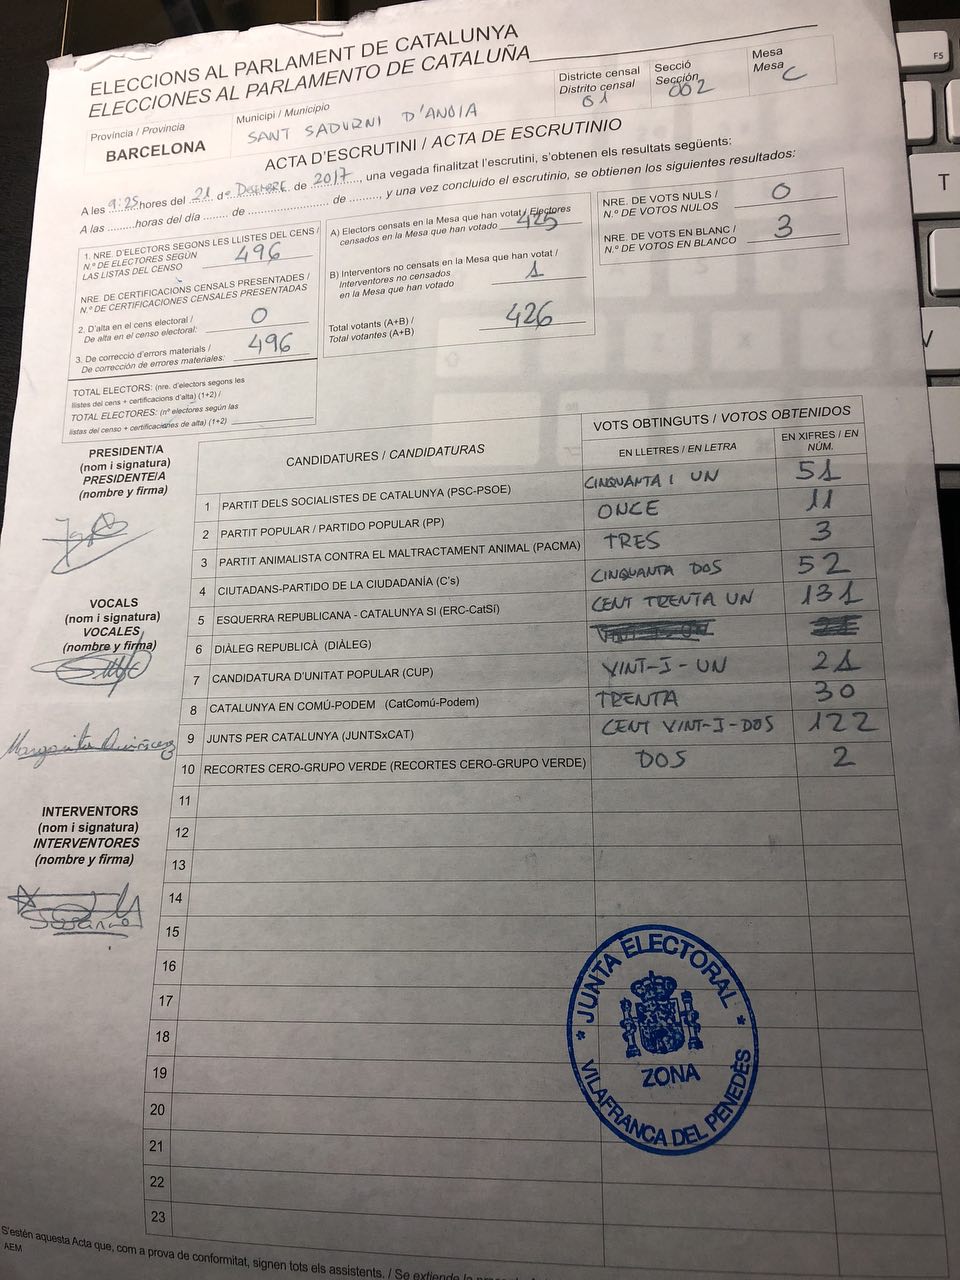 ELECCIONS AL PARLAMENT DE CATALUNYA
ELECCIONES AL PARLAMENTO DE CATALUÑA
Província / Provincia
BARCELONA
Municipi / Municipio
SANT SADURNI D'ANOIA
Districte censal
Distrito censal
01
Secció
Sección
002
Mesa
Mesa
C
ACTA D'ESCRUTINI / ACTA DE ESCRUTINIO
A les 9:25 hores del 21 de DESEMBRE de 2017, una vegada finalitzat l'escrutini, s'obtenen els resultats següents:
A las ......... horas del día ........ de ........................ de ........, y una vez concluido el escrutinio, se obtienen los siguientes resultados:
1. NRE. D'ELECTORS SEGONS LES LLISTES DEL CENS /
N.º DE ELECTORES SEGÚN
LAS LISTAS DEL CENSO 496
NRE. DE CERTIFICACIONS CENSALS PRESENTADES /
N.º DE CERTIFICACIONES CENSALES PRESENTADAS
2. D'alta en el cens electoral /
De alta en el censo electoral: 0
3. De correcció d'errors materials /
De corrección de errores materiales: 496
TOTAL ELECTORS: (nre. d'electors segons les
llistes del cens + certificacions d'alta) (1+2) /
TOTAL ELECTORES: (nº electores según las
listas del censo + certificaciones de alta) (1+2)
A) Electors censats en la Mesa que han votat / Electores
censados en la Mesa que han votado 425
B) Interventors no censats en la Mesa que han votat /
Interventores no censados
en la Mesa que han votado 1
Total votants (A+B) /
Total votantes (A+B) 426
NRE. DE VOTS NULS /
N.º DE VOTOS NULOS 0
NRE. DE VOTS EN BLANC /
N.º DE VOTOS EN BLANCO 3
PRESIDENT/A
(nom i signatura)
PRESIDENTE/A
(nombre y firma)
VOCALS
(nom i signatura)
VOCALES
(nombre y firma)
INTERVENTORS
(nom i signatura)
INTERVENTORES
(nombre y firma)
CANDIDATURES / CANDIDATURAS
VOTS OBTINGUTS / VOTOS OBTENIDOS
EN LLETRES / EN LETRA
EN XIFRES / EN
NÚM.
1 PARTIT DELS SOCIALISTES DE CATALUNYA (PSC-PSOE) CINQUANTA I UN 51
2 PARTIT POPULAR / PARTIDO POPULAR (PP) ONCE 11
3 PARTIT ANIMALISTA CONTRA EL MALTRACTAMENT ANIMAL (PACMA) TRES 3
4 CIUTADANS-PARTIDO DE LA CIUDADANÍA (C's) CINQUANTA DOS 52
5 ESQUERRA REPUBLICANA - CATALUNYA SI (ERC-CatSí) CENT TRENTA UN 131
6 DIÀLEG REPUBLICÀ (DIÀLEG)
7 CANDIDATURA D'UNITAT POPULAR (CUP) VINT-I-UN 21
8 CATALUNYA EN COMÚ-PODEM (CatComú-Podem) TRENTA 30
9 JUNTS PER CATALUNYA (JUNTSxCAT) CENT VINT-I-DOS 122
10 RECORTES CERO-GRUPO VERDE (RECORTES CERO-GRUPO VERDE) DOS 2
11
12
13
14
15
16
17
18
19
20
21
22
23
* JUNTA ELECTORAL *
ZONA
VILAFRANCA DEL PENEDÈS
S'estén aquesta Acta que, com a prova de conformitat, signen tots els assistents. / Se extiende la
AEM
F5
T
V